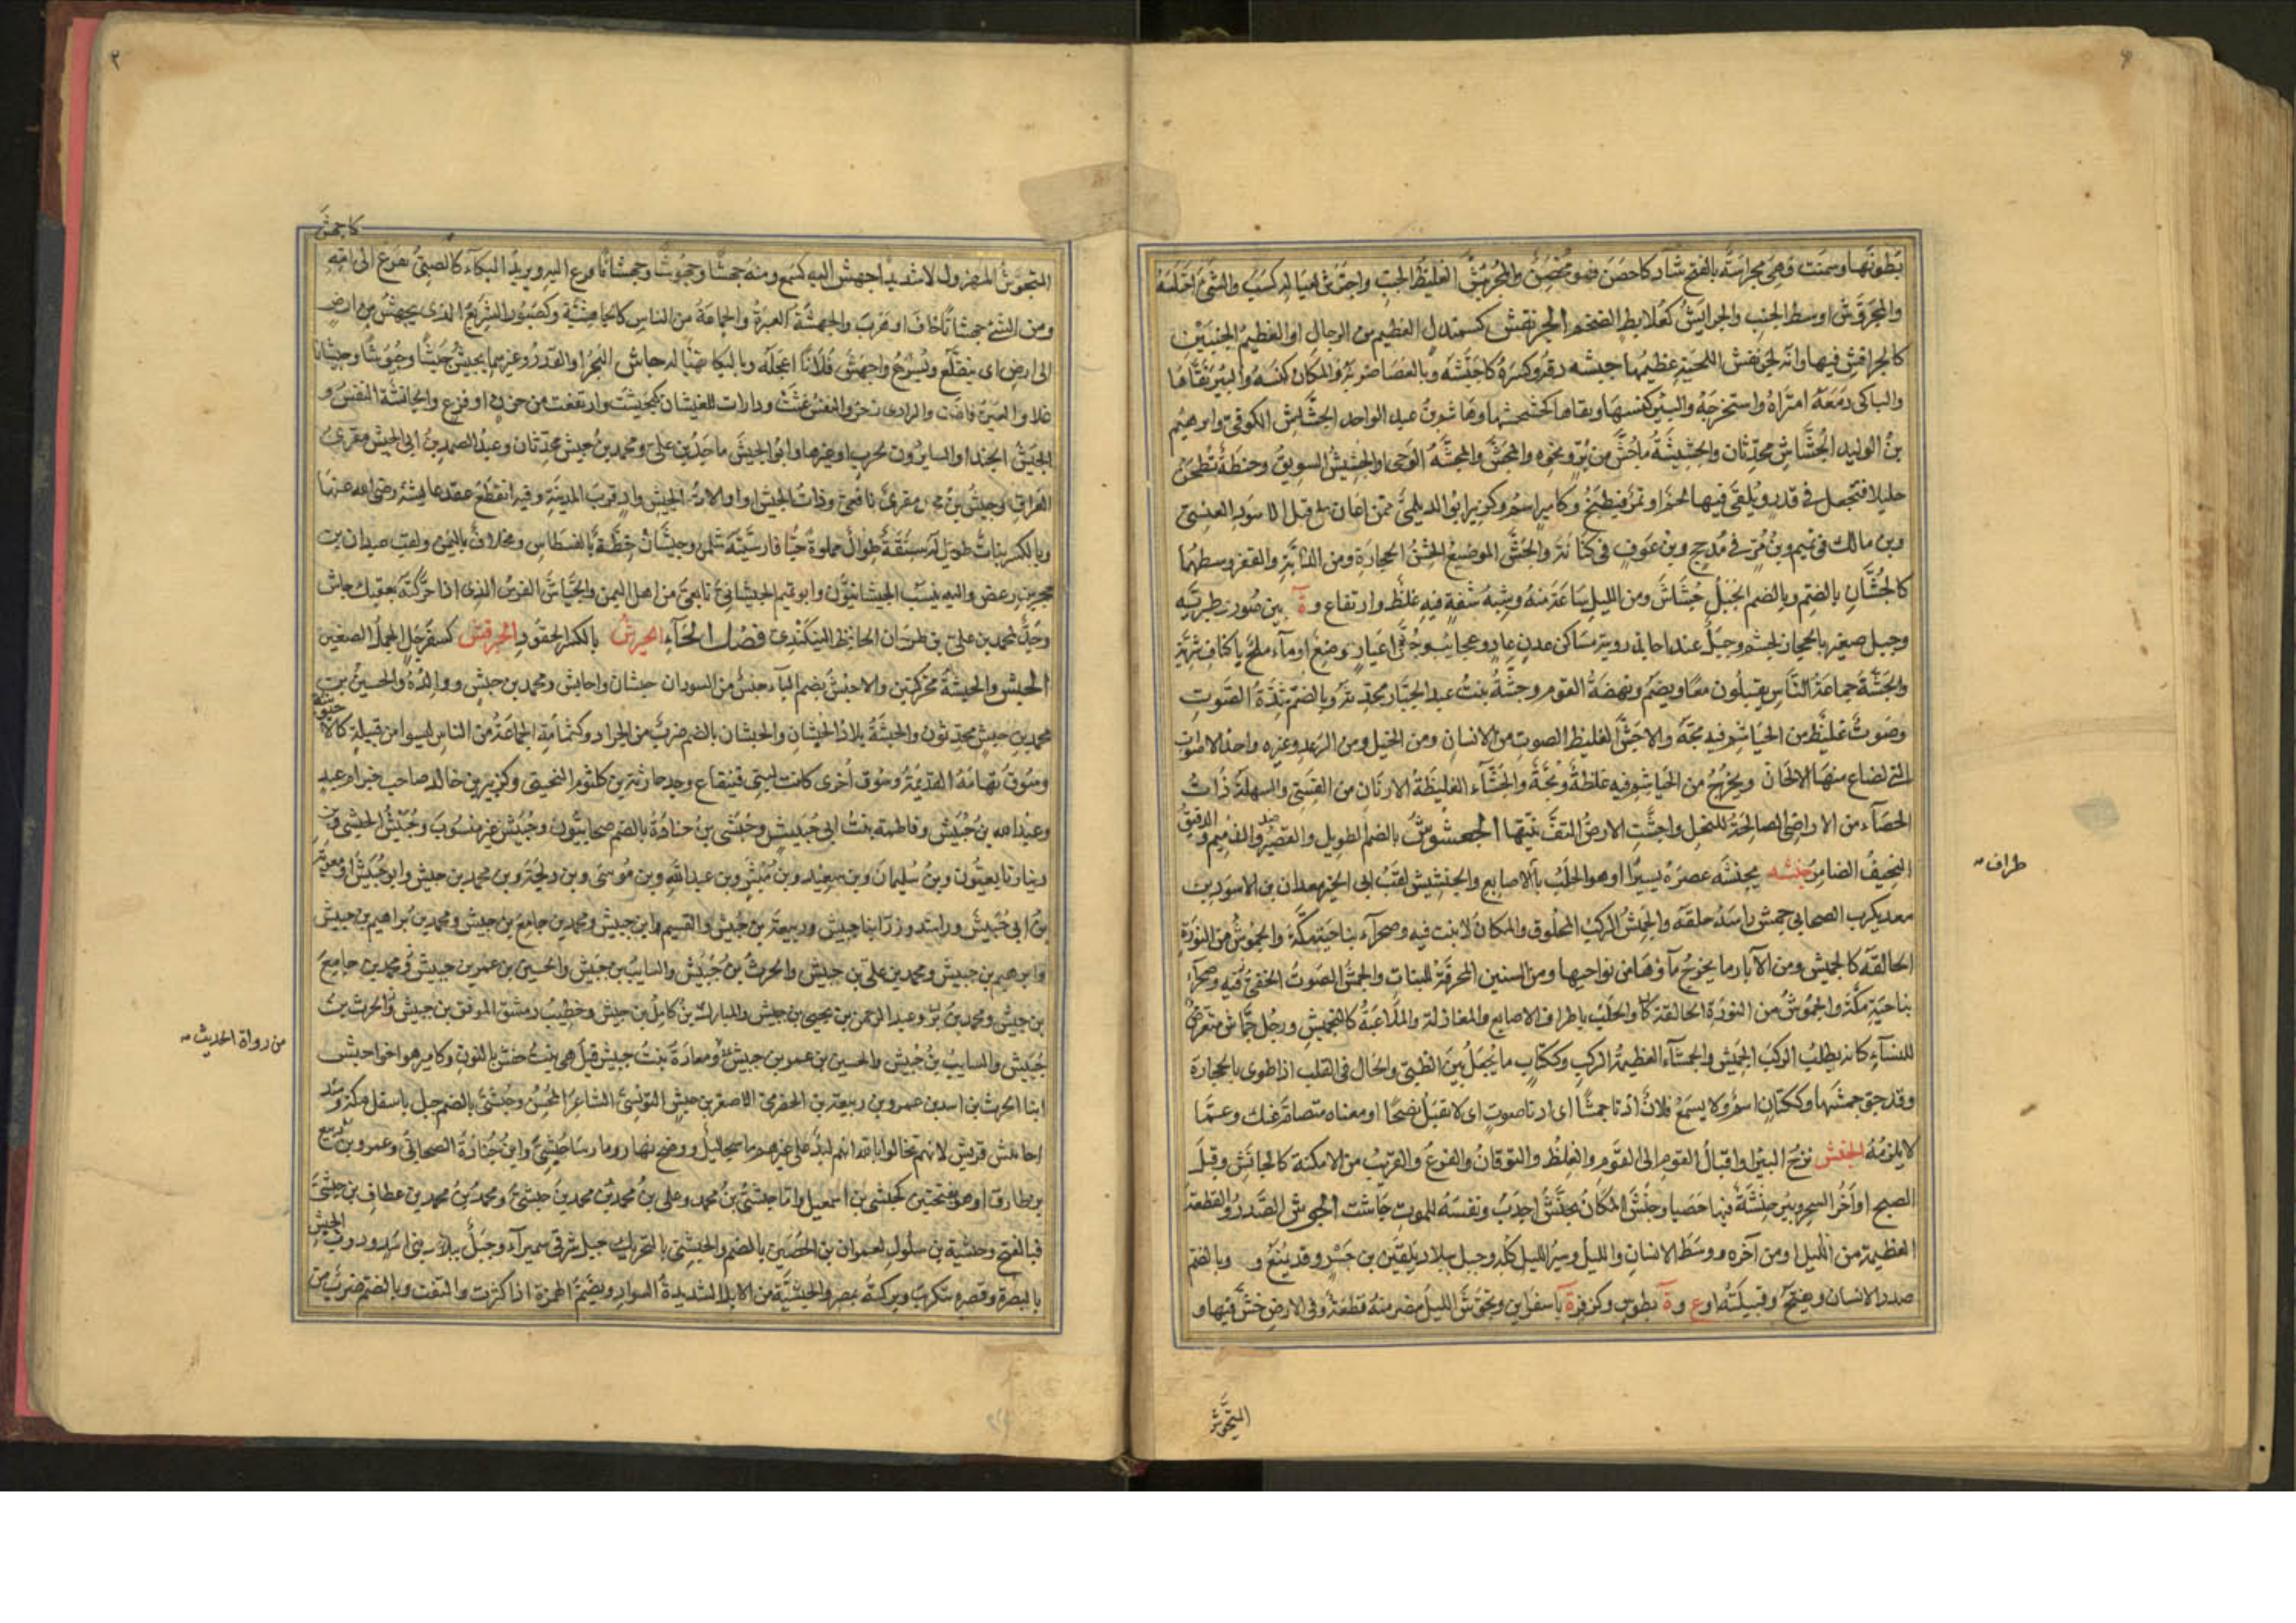 بطونها وسمنت وهي مجراشة بالفتح شاذ كاحصن فهو محصن والمجرئش الغليظ الجنب واجترش لعياله كسب والشئ اختلسه
والمجروش اوسط الجنب والجرائش كعلابط الضخم الجرنفش كسمندل العظيم من الرجال او العظيم الجنبين
كالجرافش فيها وانه لجرنفش اللحية عظيمها جشه دقه وكسره كاجشه وبالعصا ضربه والمكان كنسه والبير نقاها
والباكي دمعه امتراه واستخرجه والبير كنسها ونقاها عبد الواحد الجشاش الكوفي وابرهيم
بن الوليد الجشاش محدثان والجشيشة ما جش من بر ونحوه والمجش والمجشة الرحى والجشيش السويق وحنطة تطحن
جليلا فتجعل في قدر ويلقى فيها لحم او تمر فيطبخ وكامير اسم وكزبير ابو الديلمي ممن اعان على قتل الاسود العنسي
وبن مالك في تميم وبن مر في مذحج وبن عوف في كنانة والجش الموضع الخشن الحجارة ومن الدابة والقفر وسطهما
كالجشان بالضم وبالضم الجبل جشاش ومن الليل ساعة منه وشبه شفة فيه غلظ وارتفاع وة بين صور وطبرية
وجبل صغير بالحجاز لجشم وجبل عند اجا في ذروته مساكن عاد وعجايب وجش اعيار وضع او ماء ملح باكناف شربة
والجشة جماعة الناس يقبلون معا ويضم ونهضة القوم وجشة بنت عبد الجبار محدثة وبالضم شدة الصوت
وصوت غليظ من الخياشيم فيه بحة والاجش الغليظ الصوت من الانسان ومن الخيل ومن الرعد وغيره واحد الاصوات
التي تصاغ منها الالحان ويخرج من الخياشيم فيه غلظة وبحة والجشاء الغليظة الارنان من القسي والسهلة ذات
الحصباء من الاراضي الصالحة للنخل واجشت الارض التف نبتها الجعشوش بالضم الطويل والقصير ضد والذميم والدقيق
النحيف الضامر جفشه يجفشه عصره يسيرا او هو الحلب باالاصابع والجفشيش لقب ابي الخير معدان بن الاسود بن
معديكرب الصحابي جمش راسه حلقه والجمش الركب المحلوق والمكان لا نبت فيه وصحراء بناحية مكة والجموش من النورة
الحالقة كالجميش ومن الآبار ما يخرج ماؤها من نواحيها ومن السنين المحرقة للنبات والجمش الصوت الخفي
بناحية مكة والجموش من النورة الحالقة والحلب باطراف الاصابع والمغازلة والملاعبة كالتجميش ورجل جماش متعرض
للنساء كانه يطلب الركب الجميش والجمشاء العظيمة الركب وككتاب ما يجعل بين الطي والجال في القليب اذا طوي بالحجارة
وقد جمشها وككتان اسم ولا يسمع فلان اذنا جمشا اي ادنا صوت اي لا تقبل نصحا او معناه متصام عنك وعما
لا يلزمه الجنش نزح البير واقبال القوم الى القوم والغلظ والتوقان والفزع والقريب من الامكنة كالجانش وقبل
الصبح او آخر السحر وبير جنشة فيها حصبا وجنش المكان يجنش اجدب ونفسه للموت جاشت الجوش الصدر والقطعة
العظيمة من الليل او من آخره ووسط الانسان والليل وسير الليل كله وجبل ببلاد بلقين بن جسر وقد يمنع و وبالضم
صدر الانسان ويفتح وقبيلة او ع وة بطوس وكزفرة باسفراين وتجوش الليل مضى منه قطعة وفي الارض خش فيها و
المتجوش
طراف
كاجهش
المتجوش المهزول لا شديدا جهش اليه كسمع ومنع جهشا وجهوشا وجهشانا فزع اليه ويريد البكاء كالصبي يفزع الى امه
ومن الشئ جهشانا خاف او هرب والجهشة العبرة والجماعة من الناس كالجاهشة وكصبور السريع الذي يجهش من ارض
الى ارض اي يتقلع ويسرع واجهش فلانا اعجله وبالبكا تهيا له جاش البحر والقدر وغيرهما يجيش جيشا وجيوشا وجيشانا
غلا والعين فاضت والوادي زخر والنفس غثت ودارت للغثيان كتجيشت وارتفعت من حزن او فزع والجائشة النفس و
الجيش الجند او السايرون لحرب او غيرها وابو الجيش ماجد بن علي ومحمد بن جيش محدثان وعبد الصمد بن ابي الجيش مقرئ
العراق وجيش بن محمد مقرئ نافعي وذات الجيش او اولات الجيش واد قرب المدينة وفيه انقطع عقد عايشة رضي الله عنها
وبالكسر نبات طويل له سنفة طوال مملوة حبا فارسيته شلمز وجيشان خطة بالفسطاس ومخلاف باليمن ولقب عبدان بن
حجر بن رعين واليه ينسب الجيشانيون وابو تميم الجيشاني تابعي من اهل اليمن والجياش الفرس الذي اذا حركته بعقبك جاش
وجد لمحمد بن علي بن طرخان الحافظ البيكندي فصل الحاء الحبرش بالكسر الحقود الحبرقش كسفرجل الجمل الصغير
الحبش والحبشة محركتين والاحبش بضم الباء جنس من السودان حبشان واحابش ومحمد بن حبش ووالده والحسين بن
محمد بن حبش محدثون والحبشة بلاد الحبشان والحبشان بالضم ضرب من الجراد وكثمامة الجماعة من الناس ليسوا من قبيلة كالاحبوشة
وسوق تهامة القديمة وسوق اخرى كانت لبني قينقاع وجد حارثة بن كلثوم التجيبي وكزبير بن خالد صاحب خبر ام معبد
وعبد الله بن حبيش وفاطمة بنت ابي حبيش وحبشي بن جنادة بالضم صحابيون وحبيش غير منسوب وحبيش الحبشي وبن
دينار تابعيون وبن سليمان وبن سعيد وبن مبشر وبن عبد الله وبن موسى وبن دلجة وبن محمد بن حبيش وابو حبيش او معوية
بن ابي حبيش وراشد وزر ابنا حبيش وربيعة بن حبيش والقسم وابن حبيش ومحمد بن جامع بن حبيش ومحمد بن ابراهيم بن حبيش
وابرهيم بن حبيش ومحمد بن علي بن حبيش والحرث بن حبيش والسايب بن حبيش والحسين بن عمر بن حبيش ومحمد بن جامع
بن حبيش وعبد الرحمن بن يحيى بن حبيش والمبارك بن كامل بن حبيش وخطيب دمشق الموفق بن حبيش والحرث بن
حبيش والسايب بن حبيش والحسين بن عمر بن حبيش ومعاذة بنت حبيش قيل هي بنت حنش بالنون وكامير هو اخو احبش
ابنا الحرث بن اسد بن عمرو بن ربيعة بن الحضرمي الاصغر بن حبيش التونسي الشاعر المحسن وحبشي بالضم جبل باسفل مكة ومنه
احابيش قريش لانهم تحالفوا بالله انهم ليد على غيرهم ما سجا ليل ووضح نهار وما رسا حبشي وابن جنادة الصحابي وعمرو بن الربيع
بن طارق او هو بفتحتين كحبشي بن اسمعيل واما حبشي بن محمد وعلي بن محمد بن حبشي ومحمد بن محمد بن عطاف بن حبشي
فبالفتح وحبشية بن سلول لعمران بن الحصين بالضم والحبشي بالتحريك جبل شرقي سميراء وجبل ببلاد بني اسد ودرب الحبش
بالبصرة وقصره بتكريت وبركته بمصر والحبشية من الابل الشديدة السواد وبضم الهمزة اذا كثرت والتفت وبالضم ضرب من
من رواة الحديث